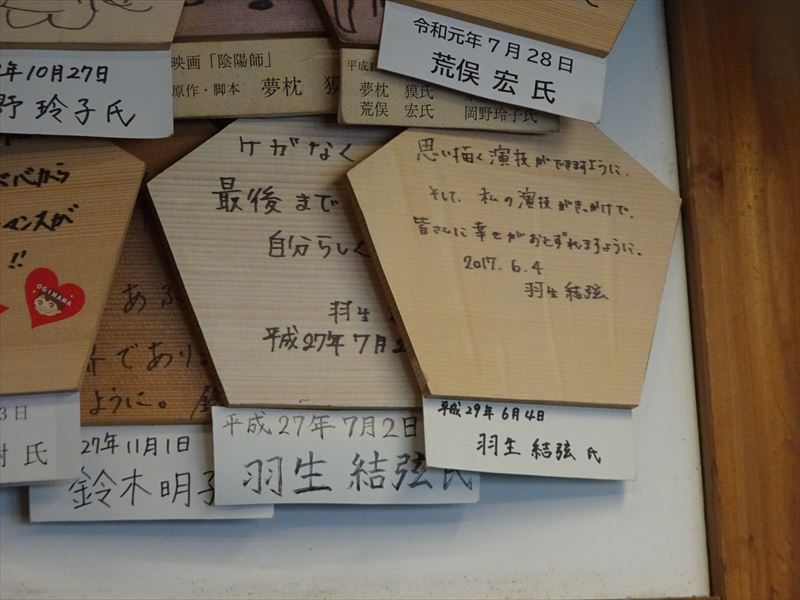 年10月27日
野 玲子氏
映画「陰陽師」
原作・脚本 夢枕 獏
平成1
夢枕 獏氏
荒俣 宏氏
岡野玲子氏
令和元年7月28日
荒俣 宏 氏
から
マンスが
!!
OGIMAMA
3日
樹 氏
ある
であり
ように。
27年11月1日
鈴木明子
ケガなく
最後まで
自分らしく
羽生
平成27年7月2
平成27年7月2日
羽生 結弦氏
思い描く演技ができますように。
そして、私の演技がきっかけで、
皆さんに幸せがおとずれますように。
2017. 6. 4
羽生結弦
平成29年6月4日
羽生 結弦 氏